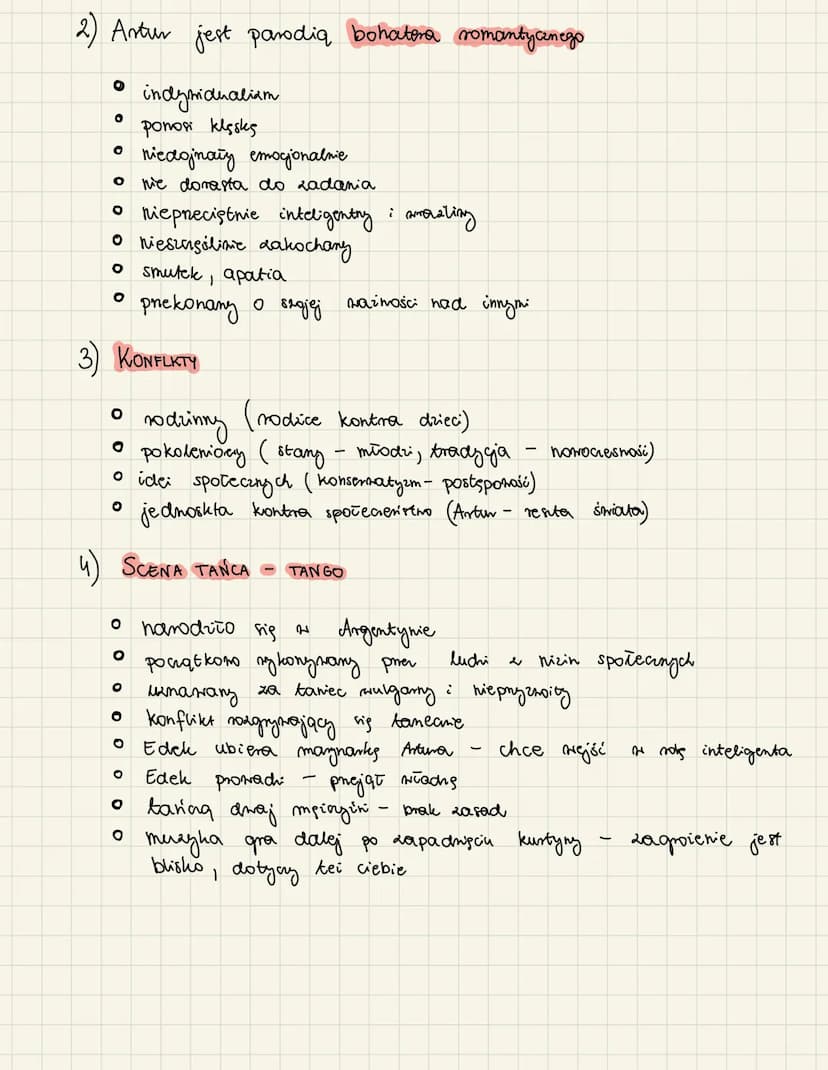 2) Artur jest parodią bohatera romantycznego
indywidualizm
ponosi klęskę
niedojrzały emocjonalnie
nie dorasta do zadania
nieprzeciętnie inteligentny i wrażliwy
nieszczęśliwie zakochany
smutek, apatia
przekonany o swojej ważności nad innymi
3) KONFLKTY
rodzinny (rodzice kontra dzieci)
pokoleniowy (starzy - młodzi, tradycja - nowoczesność)
idei społecznych (konserwatyzm - postępowość)
jednostka kontra społeczeństwo (Artur - reszta świata)
4) SCENA TAŃCA - TANGO
narodziło się w Argentynie
początkowo wykonywany przez ludzi z nizin społecznych
uznawany za taniec wulgarny i nieprzyzwoity
konflikt rozgrywający się tanecznie
Edek ubiera marynarkę Artura - chce wejść w rolę inteligenta
Edek prowadzi - przejął władzę
tańczą dwaj mężczyźni - brak zasad
muzyka gra dalej po zapadnięciu kurtyny - zagrożenie jest
blisko, dotyczy też ciebie